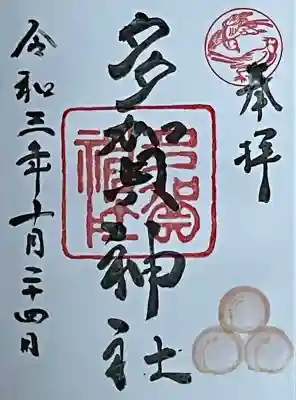 奉拝
多賀神社
令和三年十月二十四日